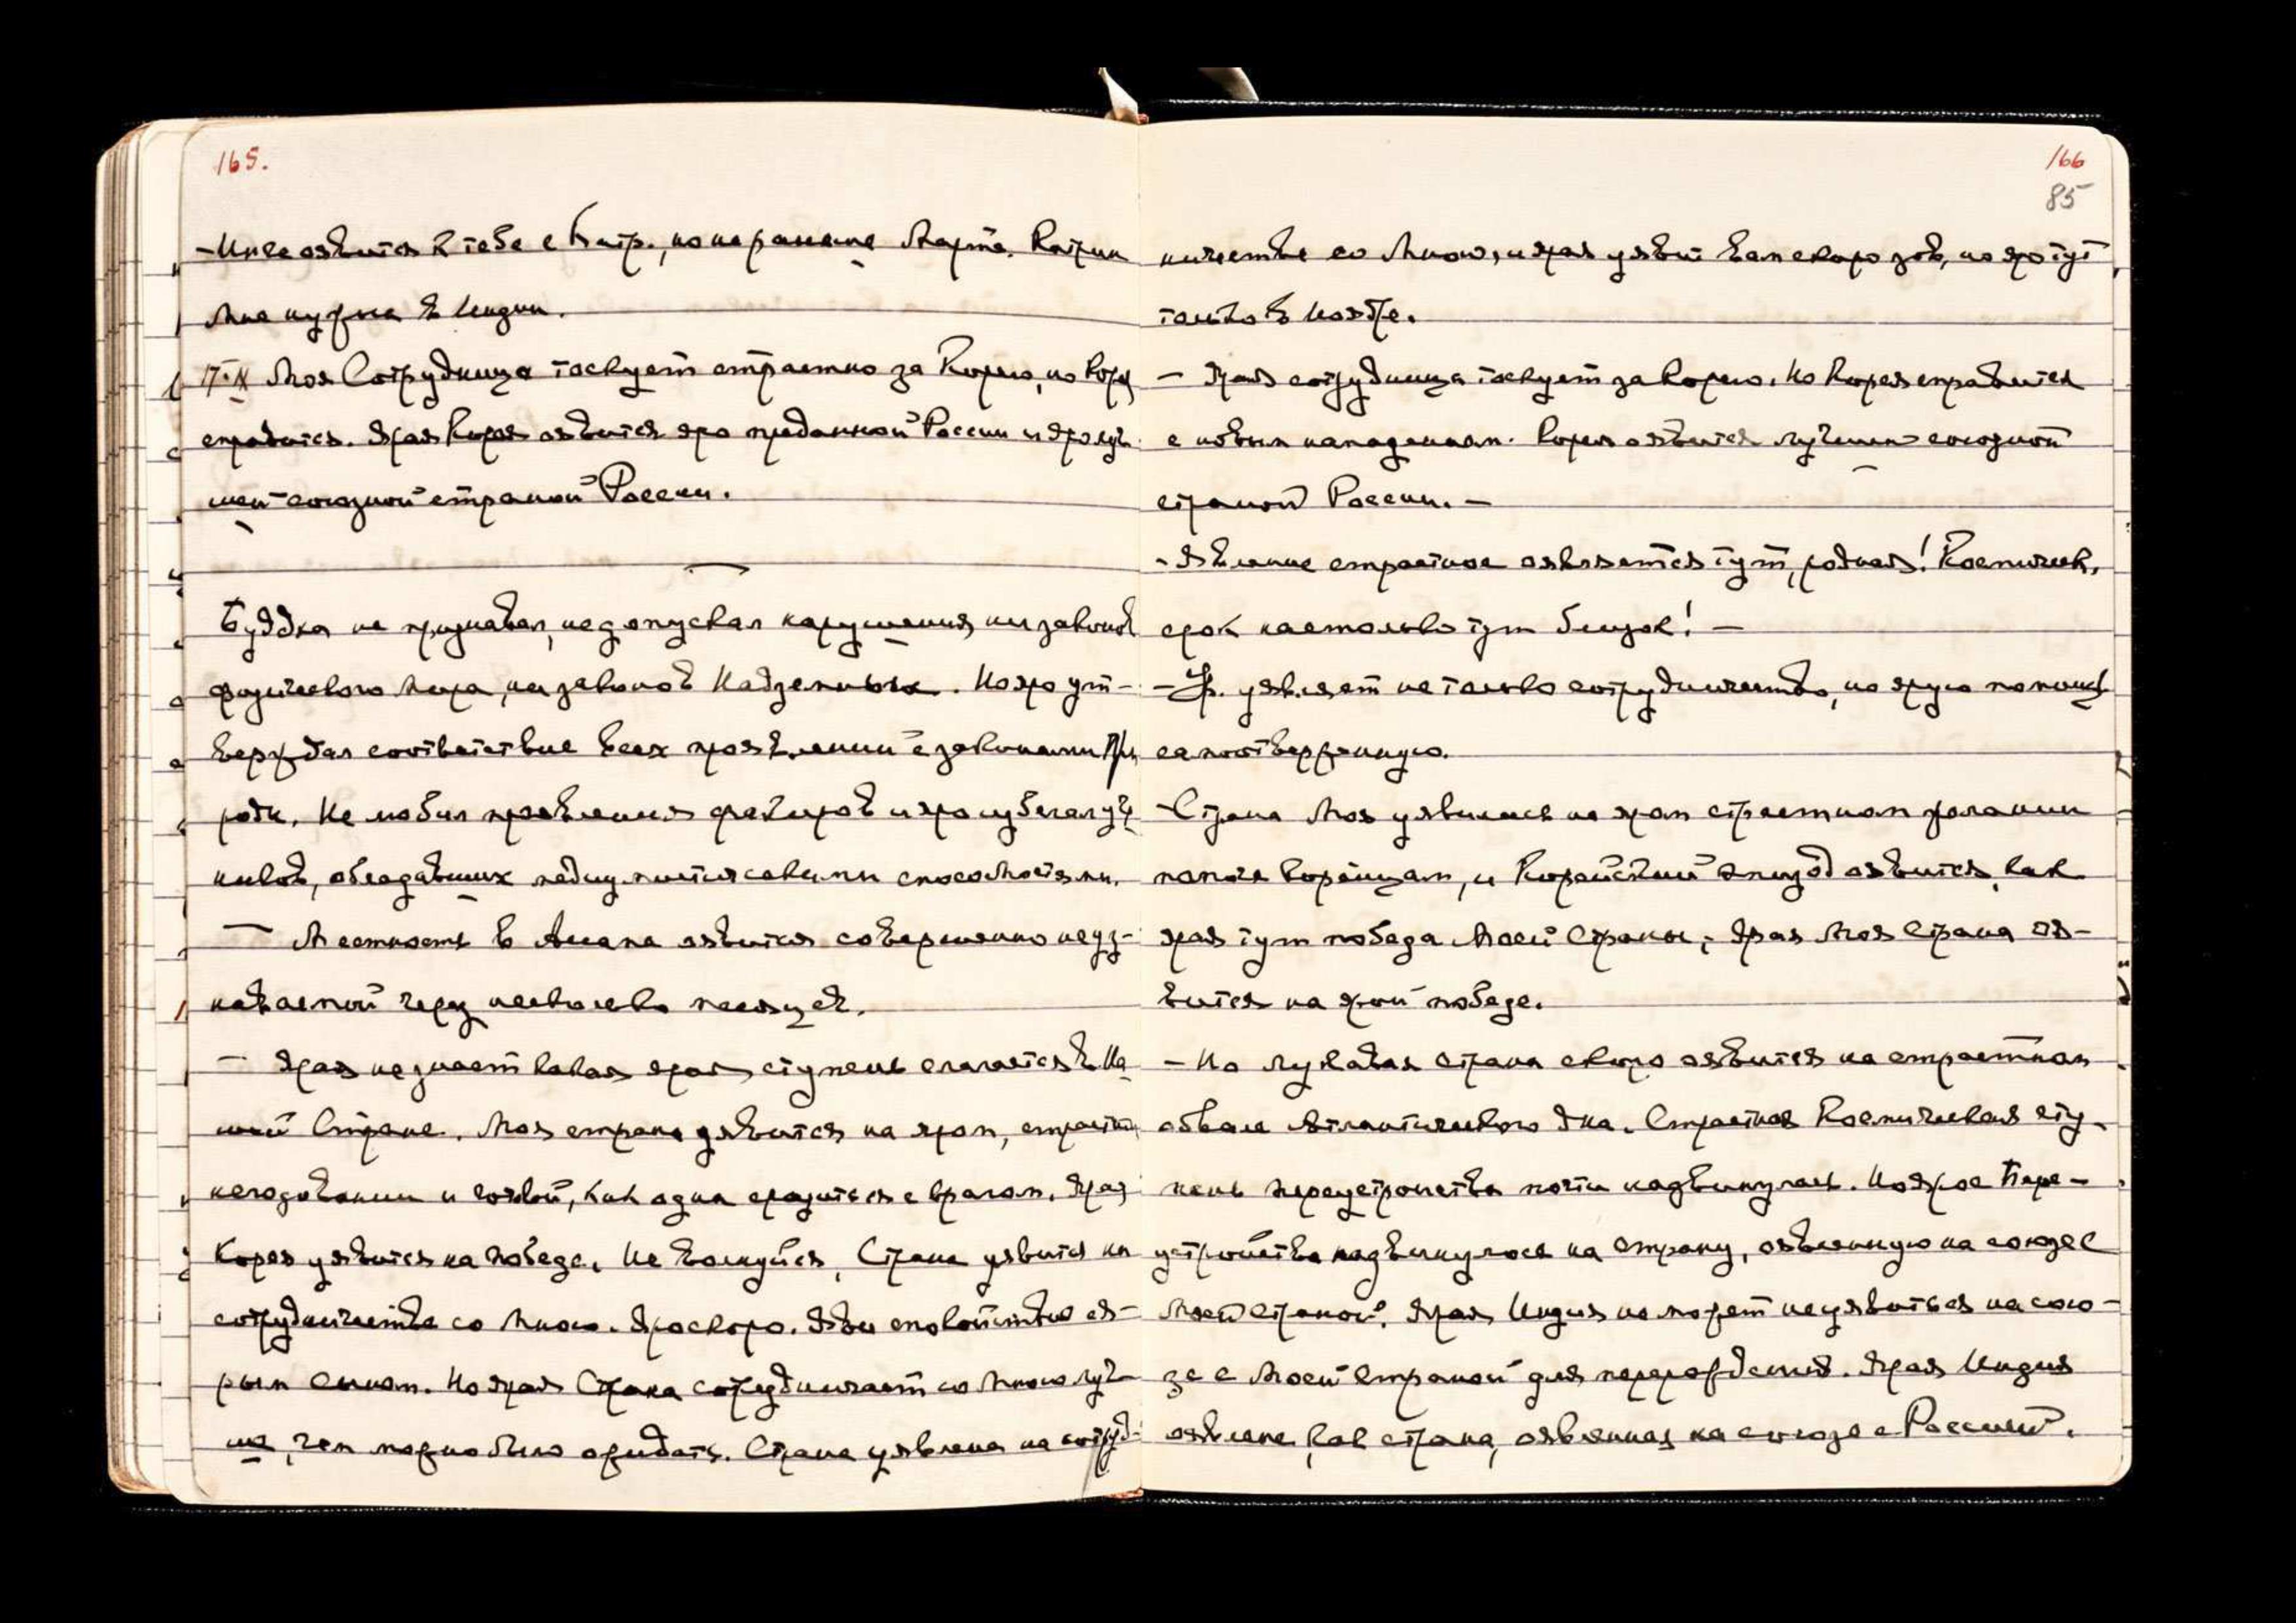 165.
- Инге оявится к тебе с Катр., но не раньше Марта. Катрин
Мне нужна в Индии.
17.IX Моя Сотрудница тоскует страстно за Корею, но Корея
справится. Ярая Корея оявится яро преданной России и яро луч-
шей союзной страной России.
Буддха не признавал, не допускал нарушения ни законов
физического мира, ни законов Надземных. Но яро ут-
верждал соответствие всех проявлений с законами При-
роды. Не любил проявления факиров и яро избегал уче-
ников, обладавших медиумистическими способностями.
— Местность в Assam оявится совершенно неуз-
наваемой через несколько месяцев.
— Ярая не знает какая ярая ступень слагается в На-
шей Стране. Моя страна уявится на яром, страстном
негодовании и готовой, как одна сразиться с врагом. Ярая
Корея уявится на победе. Не волнуйся, Страна уявится на
сотрудничестве со Мною. Яро скоро. Яви спокойствие ста-
рым силам. Но ярая Страна сотрудничает со Мною луч-
ше, чем можно было ожидать. Страна уявлена на сотруд-
166
85
ничестве со Мною, и ярая уяви Вам скоро зов, но яро тут
только в Ноябре.
— Ярая сотрудница тоскует за Корею. Но Корея справится
с новым нападением. Корея оявится лучшей союзной
страной России. —
- Явление страстное оявляется тут, родная! Космическ.
срок настолько тут близок! —
- Ур. уявляет не только сотрудничество, но ярую помощь
самоотверженную.
- Страна Моя уявилась на яром страстном желании
помочь Корейцам, и Корейский эпизод оявится, как
ярая тут победа Моей Страны; Ярая Моя Страна оя-
вится на ярой победе.
- Но лукавая страна скоро оявится на страстном
обвале Атлантического дна. Страстная Космическая сту-
пень переустройства почти надвинулась. Но ярое Пере-
устройство надвинулось на страну, оявленную на союзе с
Моей страной. Ярая Индия не может не уявиться на сою-
зе с Моей страной для перерождения. Ярая Индия
оявлена, как страна, оявленная на союзе с Россией.